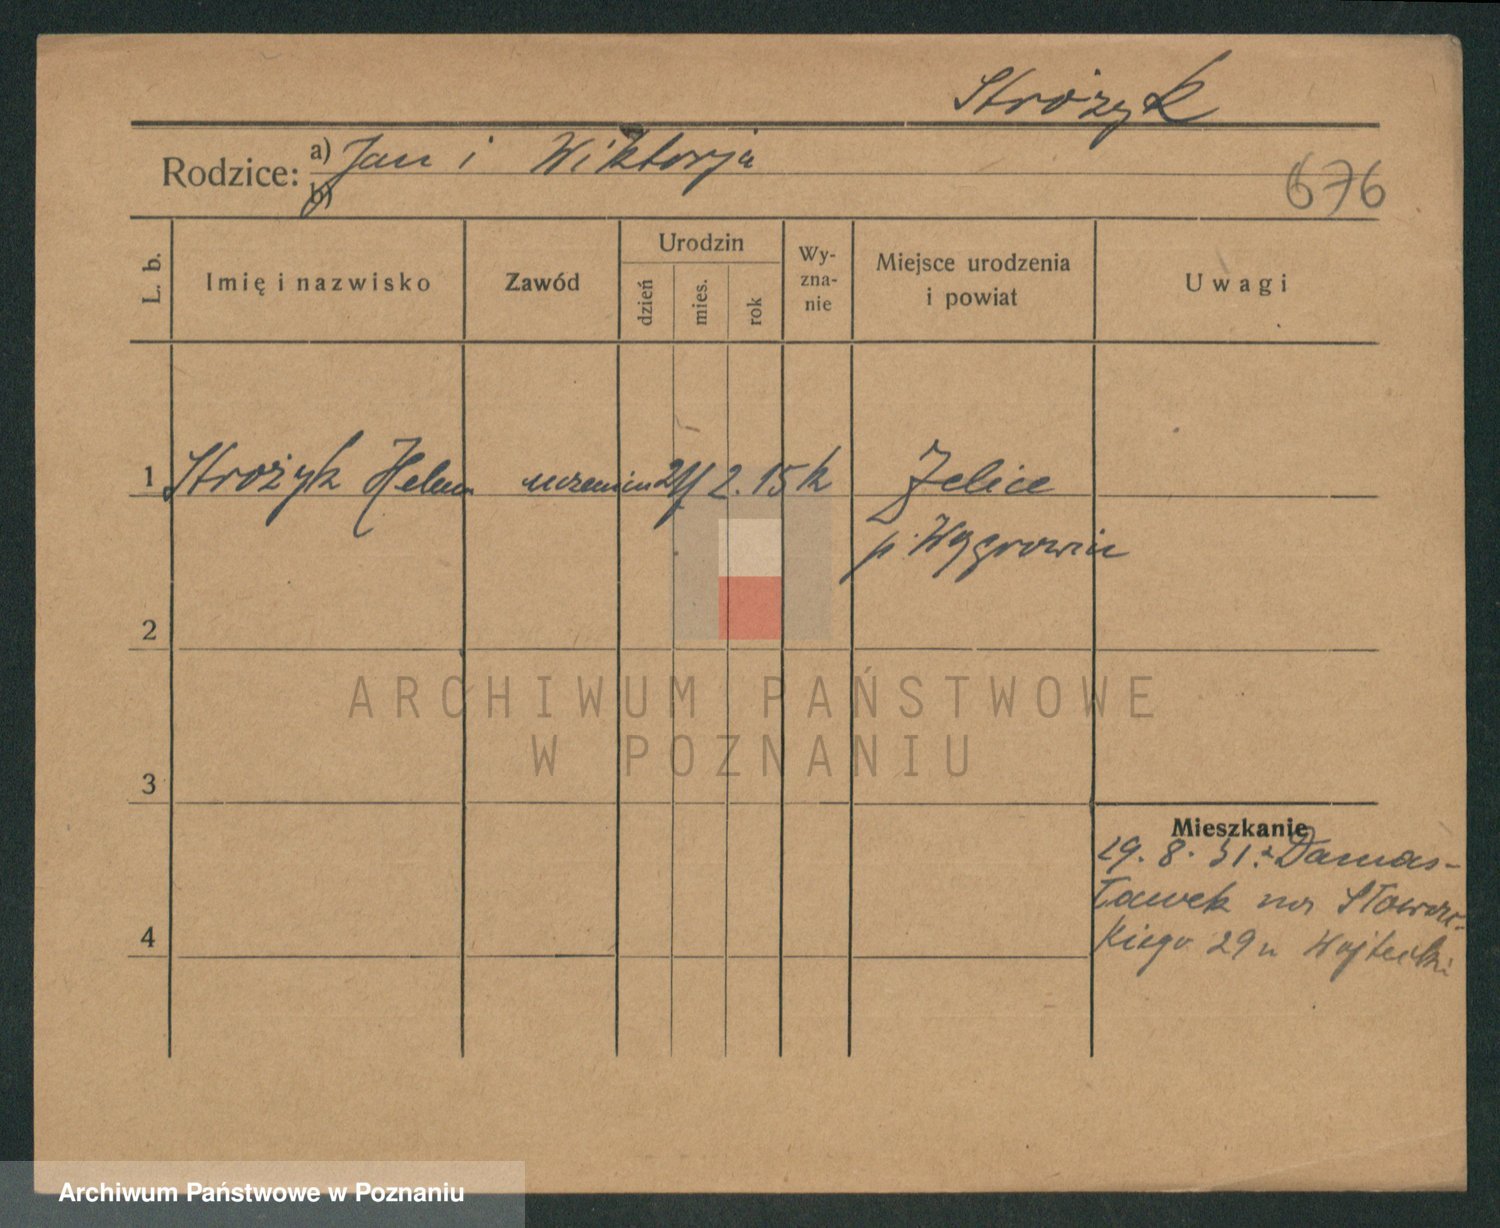 Strożyk
Rodzice: a) Jan i Wiktorja
b)
676
L. b.
Imię i nazwisko
Zawód
Urodzin
dzień
mies.
rok
Wy-
zna-
nie
Miejsce urodzenia
i powiat
Uwagi
1 Strożyk Helena uczenica 2. 15 k Zelice
p. Wągrowiec
2
3
4
Mieszkanie
29. 8. 31. z Damas-
ławek na Słowac-
kiego 29 u
ARCHIWUM PAŃSTWOWE
W POZNANIU
Archiwum Państwowe w Poznaniu